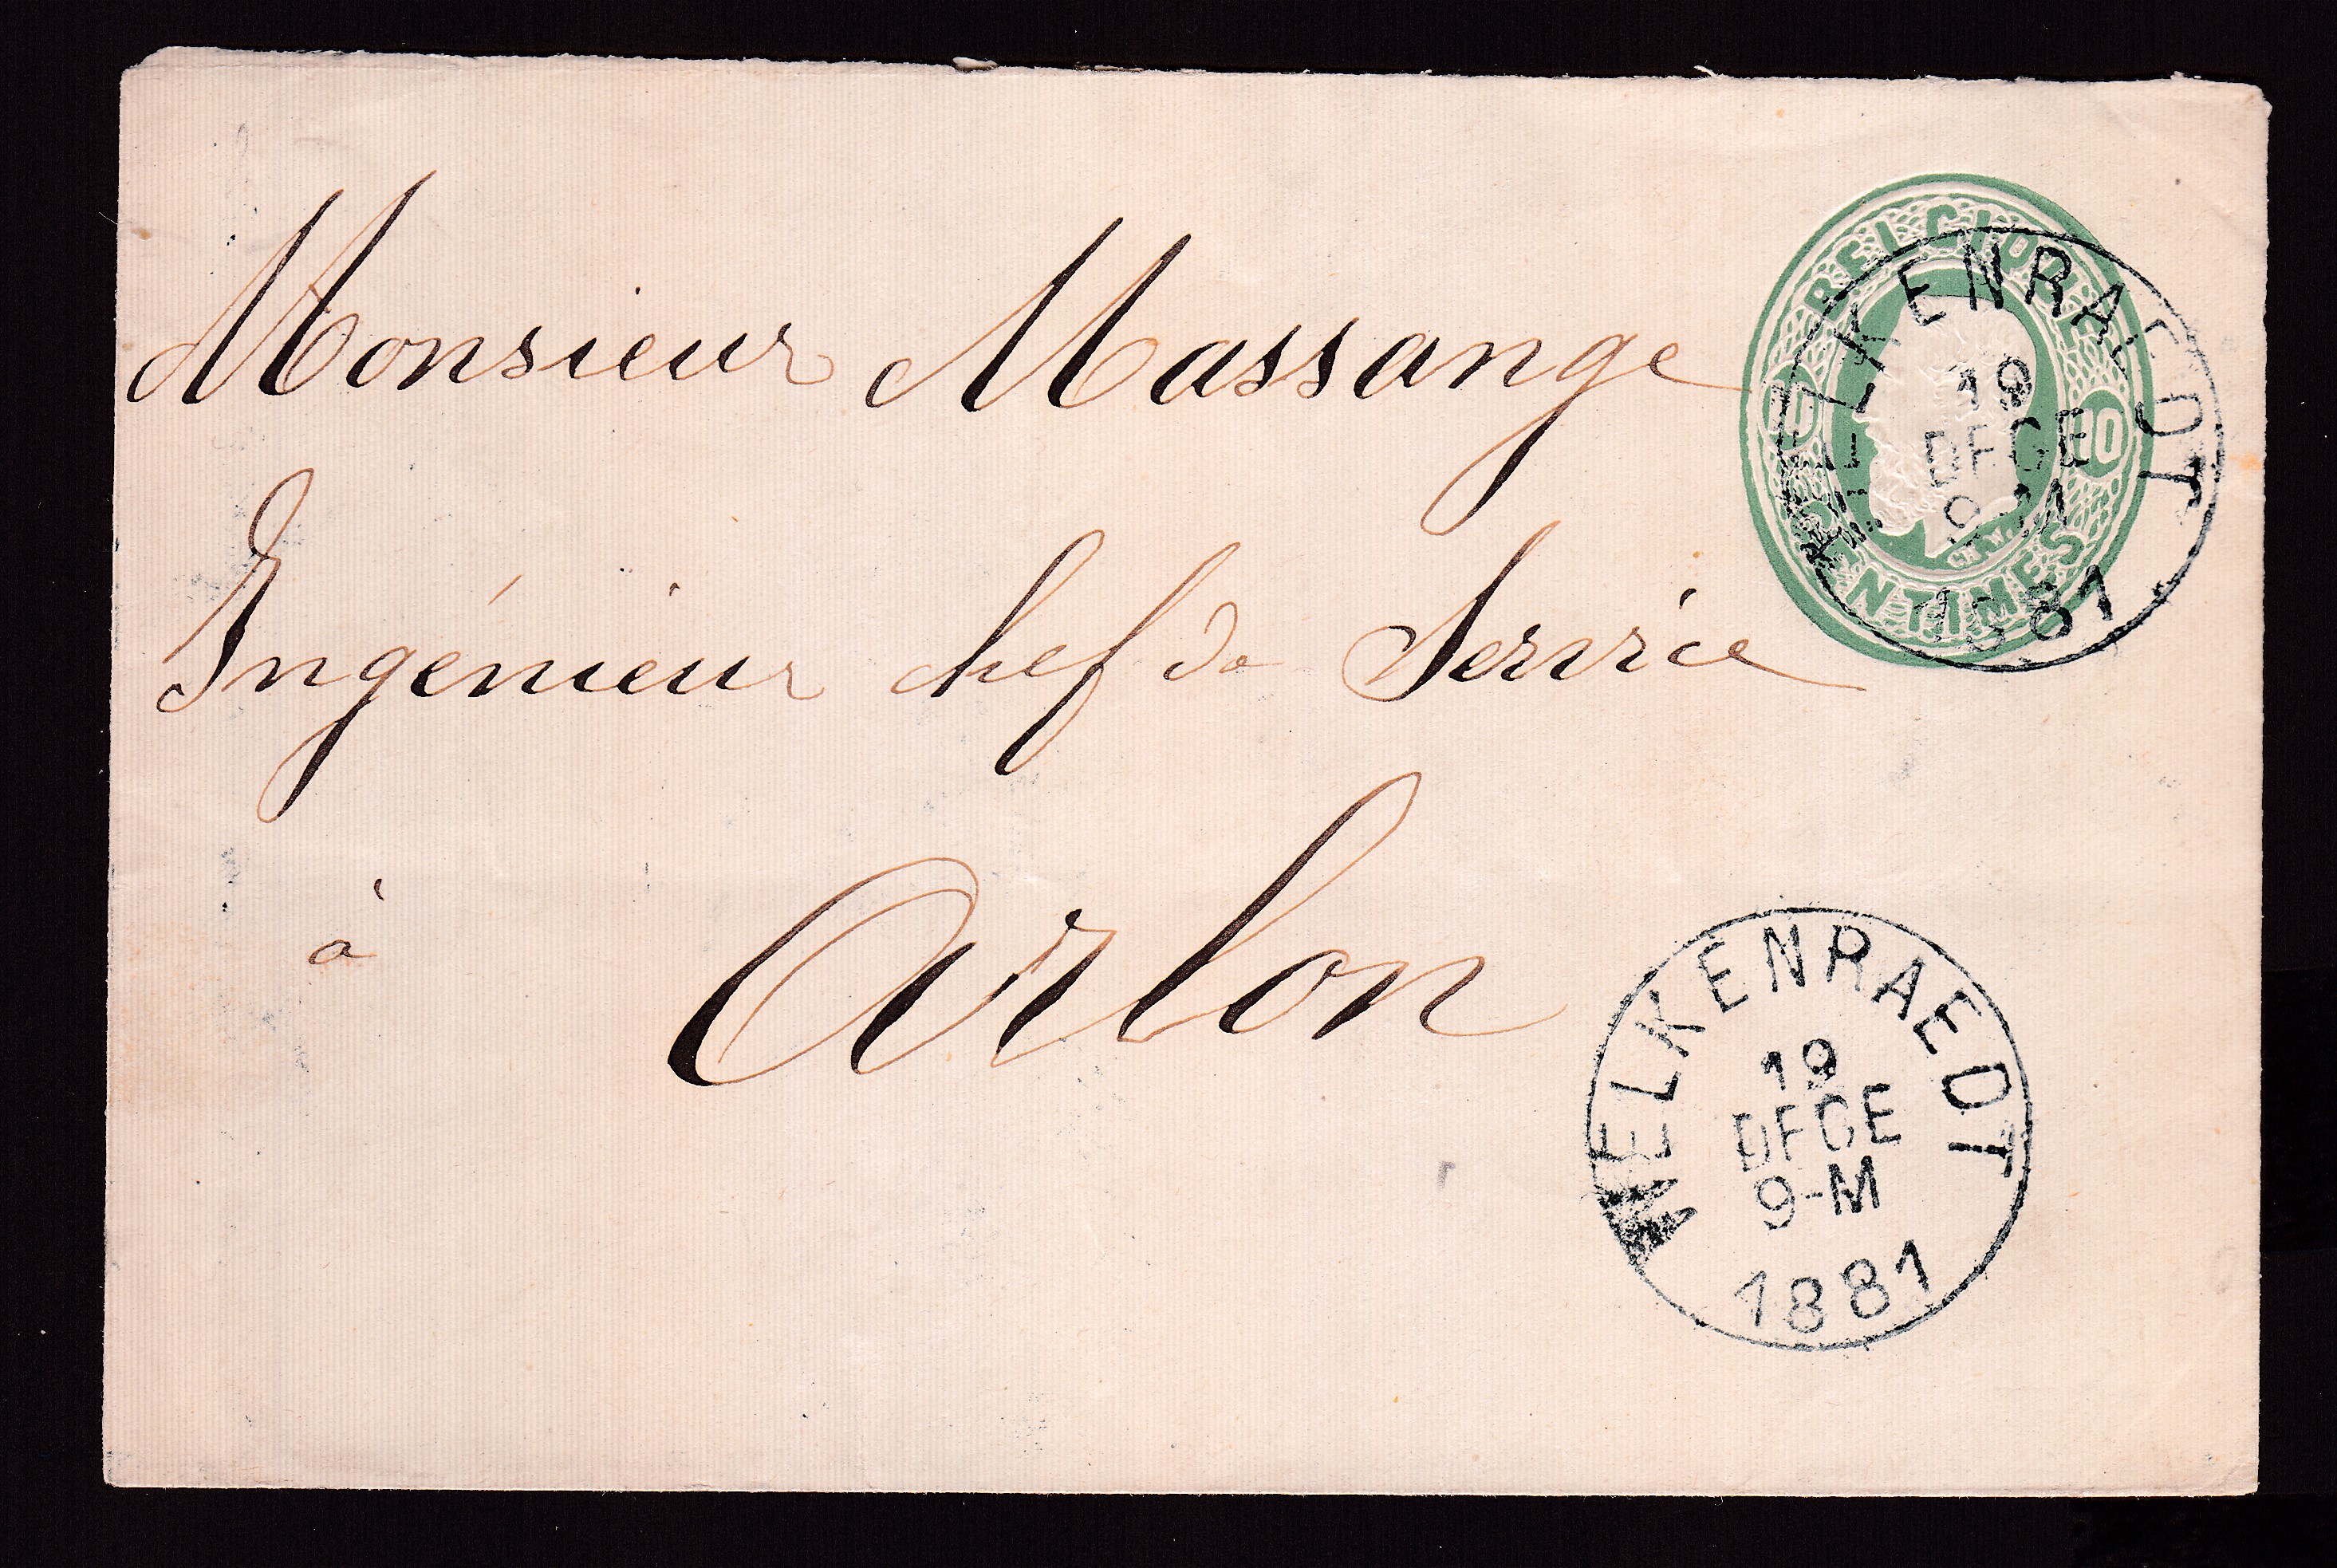 Monsieur Massange
Ingénieur chef de Service
à Arlon
BELGIQUE
10 10
CENTIMES
WELKENRAEDT
19
DECE
9-M
1881
WELKENRAEDT
19
DECE
9-M
1881